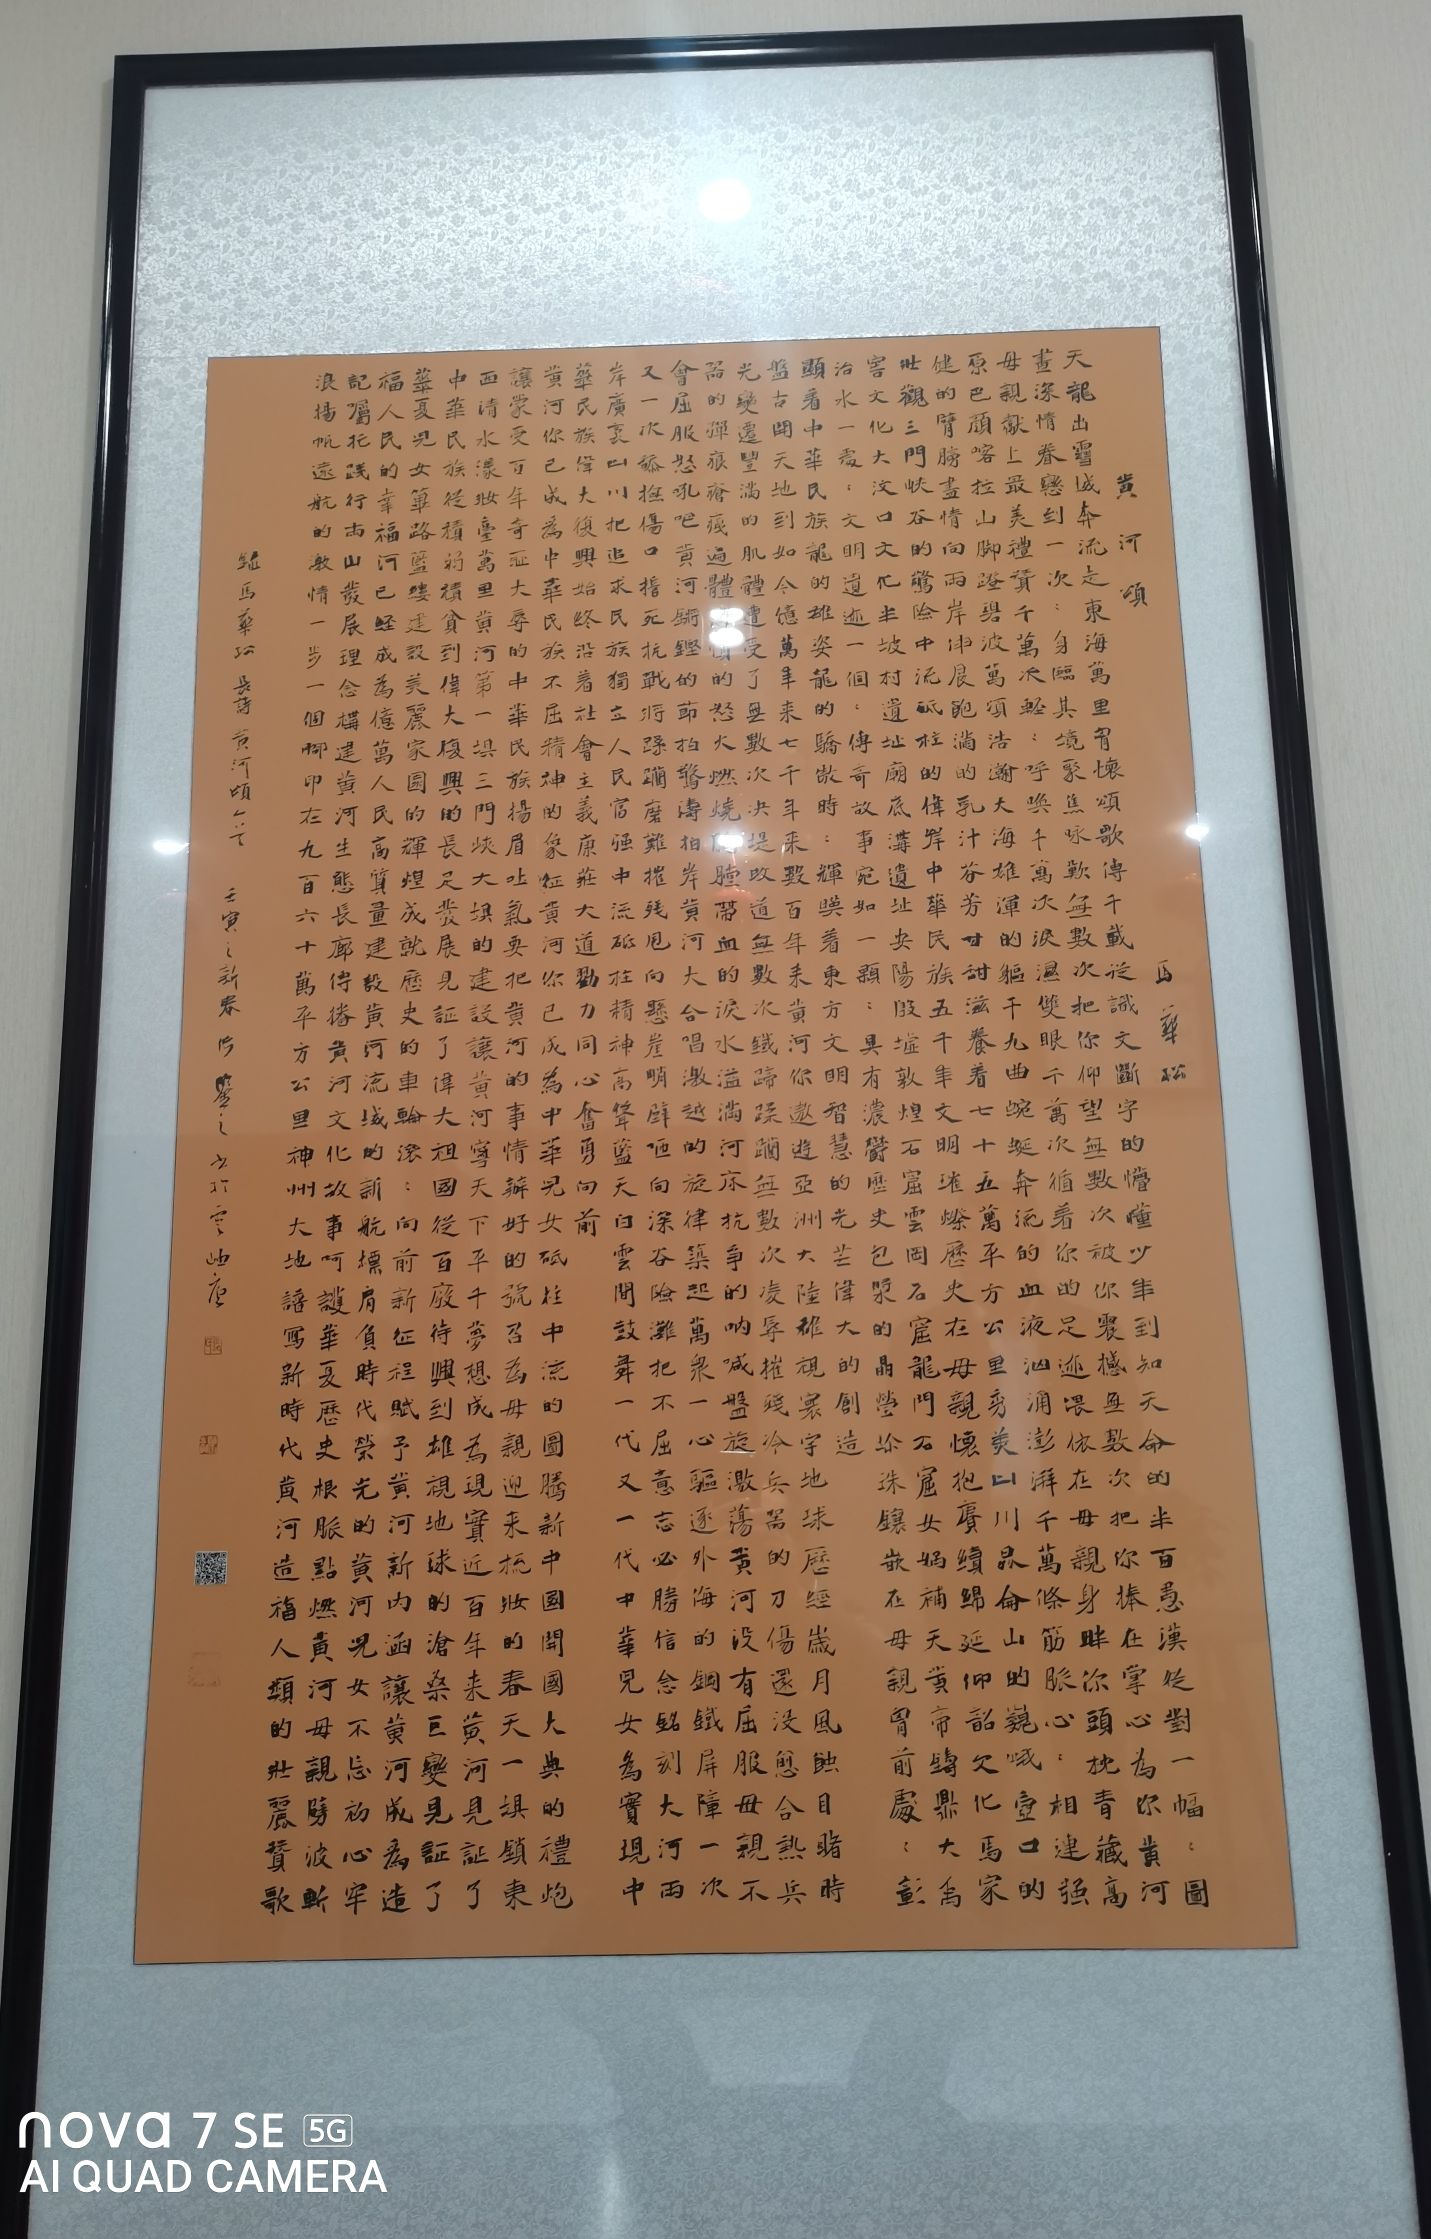 黄河頌 馬華松
天龍出雪域奔流走東海萬里胷懷頌歌傳千載從識文斷字的懵懂少年到知天命的半百愚漢從對一幅：圖
畫深情眷戀到一次：身臨其境聚焦咏歎無數次把你仰望無數次被你震撼無數次把你捧在掌心為你黄河
母親獻上最美禮讚千萬次輕：呼喚千萬次淚濕雙眼千萬次循着你的足迹偎依在母親身畔你頭枕青藏高
原巴顔喀拉山脚踏碧波萬頃浩瀚大海雄渾的軀千九曲蜿蜒奔流的血液汹涌澎湃千萬條筋脈心：相連强
健的臂膀盡情向兩岸伸展飽滿的乳汁芬芳甘甜滋養着七十五萬平方公里秀美山川昆侖山的巍峨壺口的
壯觀三門峽谷的驚險中流砥柱的偉岸中華民族五千年文明璀燦歷史在母親懷抱賡續綿延仰韶文化馬家
窖文化大汶口文化半坡村遺址廟底溝遺址安陽殷墟敦煌石窟雲岡石窟龍門石窟女媧補天黄帝鑄鼎大禹
治水一處：文明遺迹一個：傳奇故事宛如一顆：具有濃鬱歷史包漿的晶瑩珍珠鑲嵌在母親胷前處：彰
顯着中華民族龍的雄姿龍的驕傲時：輝映着東方文明智慧的光芒偉大的創造
盤古開天地到如今億萬年来七千年来數百年来黄河你遨遊亞洲大陸雄視寰宇地球歷經歲月風蝕目睹時
光變遷豐滿的肌體遭受了無數次决堤改道無數次鐵蹄蹂躪無數次凌辱摧殘冷兵器的刀傷還没愈合熱兵
器的彈痕瘡痍遍體的怒火燃燒膛帶血的淚水溢滿河床抗争的呐喊盤旋激蕩黄河没有屈服母親不
會屈服怒吼吧黄河鏘鏗的節拍驚濤拍岸黄河大合唱激越的旋律築起萬衆一心驅逐外海的鋼鐵屏障一次
又一次舔撫傷口指死抗戰將蹂躪磨難摧殘甩向懸崖峭壁砸向深谷險灘把不屈意志必勝信念銘刻大河兩
岸廣袤山川把追求民族獨立人民富强中流砥柱精神高聳藍天白雲間鼓舞一代又一代中華兒女為實現中
華民族偉大復興始終沿着社會主義康莊大道勠力同心奮勇向前
黄河你已成為中華民族不屈精神的象征黄河你已成為中華兒女砥柱中流的圖騰新中國開國大典的禮炮
讓蒙受百年奇恥大辱的中華民族揚眉吐氣要把黄河的事情辦好的號召為母親迎来梳妝的春天一壩鎖東
西清水漾妝臺萬里黄河第一壩三門峽大壩的建設讓黄河寧天下平千夢想成為現實近百年来黄河見証了
中華民族從積弱積貧到偉大復興的長足發展見証了偉大祖國從百廢待興到雄視地球的滄桑巨變見証了
華夏兒女篳路藍縷建設美麗家園的輝煌成就歷史的車輪滚：向前新征程賦予黄河新内涵讓黄河成為造
福人民的幸福河已經成為億萬人民高質量建設黄河流域的新航標肩負時代榮光的黄河兒女不忘初心牢
記囑托践行兩山發展理念構建黄河生態長廊傳播黄河文化故事呵護華夏歷史根脈點燃黄河母親劈波斬
浪揚帆遠航的激情一步一個脚印在九百六十萬平方公里神州大地譜寫新時代黄河造福人類的壯麗贊歌
録馬華松長詩黄河頌全文 壬寅之新春
nova 7 SE 5G
AI QUAD CAMERA